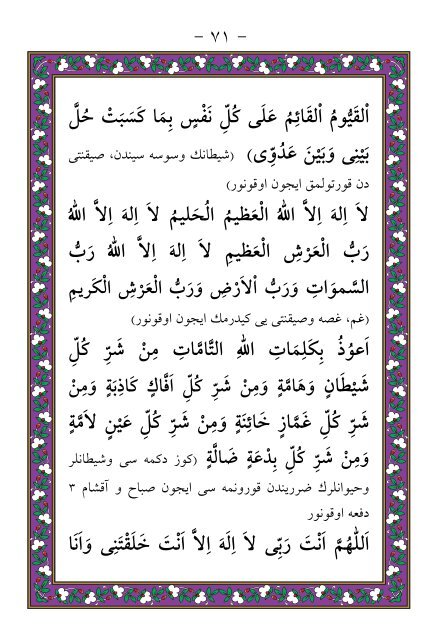 - ٧١ -
اَلْقَيُّومُ الْقَائِمُ عَلَى كُلِّ نَفْسٍ بِمَا كَسَبَتْ حُلْ
بَيْنِى وَبَيْنَ عَدُوِّى) (شيطانك وسوسه سيندن، صيقنتى
دن قورتولمق ايچون اوقونور)
لاَ اِلهَ اِلاَّ اللهُ الْعَظيمُ الْحَليمُ لاَ اِلهَ اِلاَّ اللهُ
رَبُّ الْعَرْشِ الْعَظيمِ لاَ اِلهَ اِلاَّ اللهُ رَبُّ
السَّموَاتِ وَرَبُّ اْلاَرْضِ وَرَبُّ الْعَرْشِ الْكَريمِ
(غم، غصه وصيقنتى يى كيدرمك ايچون اوقونور)
اَعوُذُ بِكَلِمَاتِ اللهِ التَّامَّاتِ مِنْ شَرِّ كُلِّ
شَيْطَانٍ وَهَامَّةٍ وَمِنْ شَرِّ كُلِّ اَفَّاكٍ كَاذِبَةٍ وَمِنْ
شَرِّ كُلِّ غَمَّازٍ خَائِنَةٍ وَمِنْ شَرِّ كُلِّ عَيْنٍ لاَمَّةٍ
وَمِنْ شَرِّ كُلِّ بِدْعَةٍ ضَالَّةٍ (كوز دكمه سى وشيطانلر
وحيوانلرك ضررندن قورونمه سى ايچون صباح و آقشام ٣
دفعه اوقونور
اَللّهُمَّ اَنْتَ رَبِّى لاَ اِلَهَ اِلاَّ اَنْتَ خَلَقْتَنِى وَاَنَا